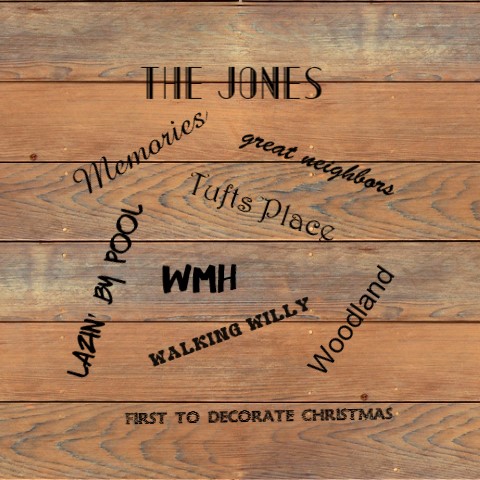 THE JONES
Memories
great neighbors
Tufts Place
LAZIN' BY POOL
WMH
WALKING WILLY
Woodland
FIRST TO DECORATE CHRISTMAS